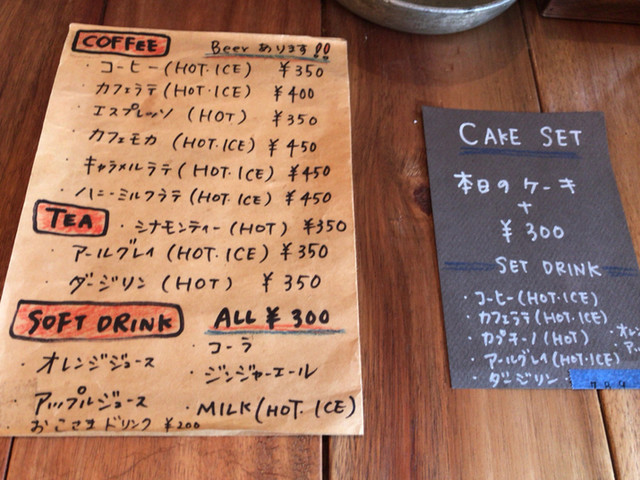 COFFEE Beer あります!!
・コーヒー(HOT・ICE) ¥350
・カフェラテ(HOT・ICE) ¥400
・エスプレッソ(HOT) ¥350
・カフェモカ(HOT・ICE) ¥450
・キャラメルラテ(HOT・ICE) ¥450
・ハニーミルクラテ(HOT・ICE) ¥450
TEA
・シナモンティー(HOT) ¥350
・アールグレイ(HOT・ICE) ¥350
・ダージリン(HOT) ¥350
SOFT DRINK ALL ¥300
・オレンジジュース
・コーラ
・ジンジャーエール
・アップルジュース
・MILK(HOT・ICE)
・おこさまドリンク ¥200
CAKE SET
本日のケーキ
+
¥300
SET DRINK
・コーヒー(HOT・ICE)
・カフェラテ(HOT・ICE)
・カプチーノ(HOT)
・アールグレイ(HOT・ICE)
・ダージリン